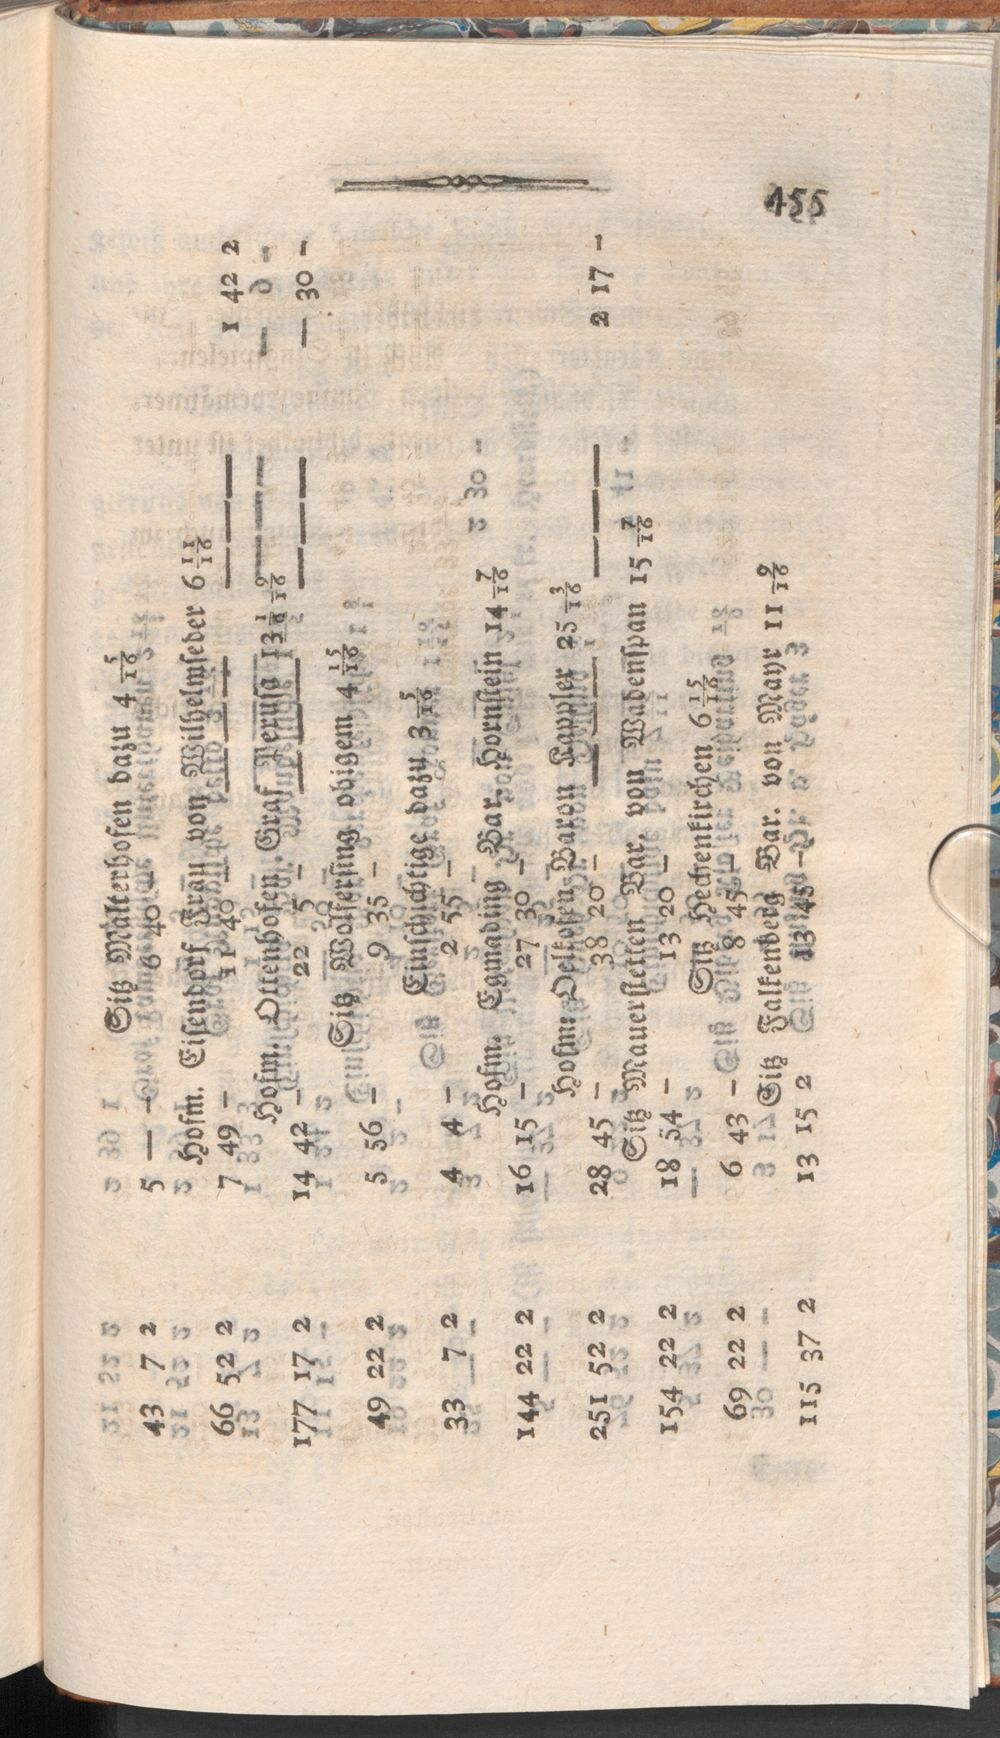 455
Sitz Malterhofen dazu 4 5/16
43 7 2 5 — — 6 40 —
Hofm. Eisendorf Frau von Wilhelmseder 6 11/16
66 52 2 7 49 — 11 40 — — — — — — — 1 42 2
Hofm. Ottenhofen Graf Perusa — — — — 6 —
177 17 2 14 42 — 22 5 — — — — — — — — 30 —
Sitz Wolfersing obigem 4 15/16
49 22 2 5 56 — 9 35 —
Einschichtige dazu 3 5/16
33 7 2 4 4 — 2 55 — 30 —
Hofm. Egmading Bar. Hornstein 14 7/16
144 22 2 16 15 — 27 30 —
Hofm: Delkofen Baron 25 3/16
251 52 2 28 45 — 38 20 — — — — — — — 2 17 —
Sitz Mauerstetten Bar. von Wadenspan 15 7/16
154 22 2 18 54 — 13 20 —
Sitz Hechenkirchen 6 15/16
69 22 2 6 43 — 8 45 —
Sitz Falkenberg Bar. von Mayr 11 9/16
115 37 2 13 15 2 13 45 —